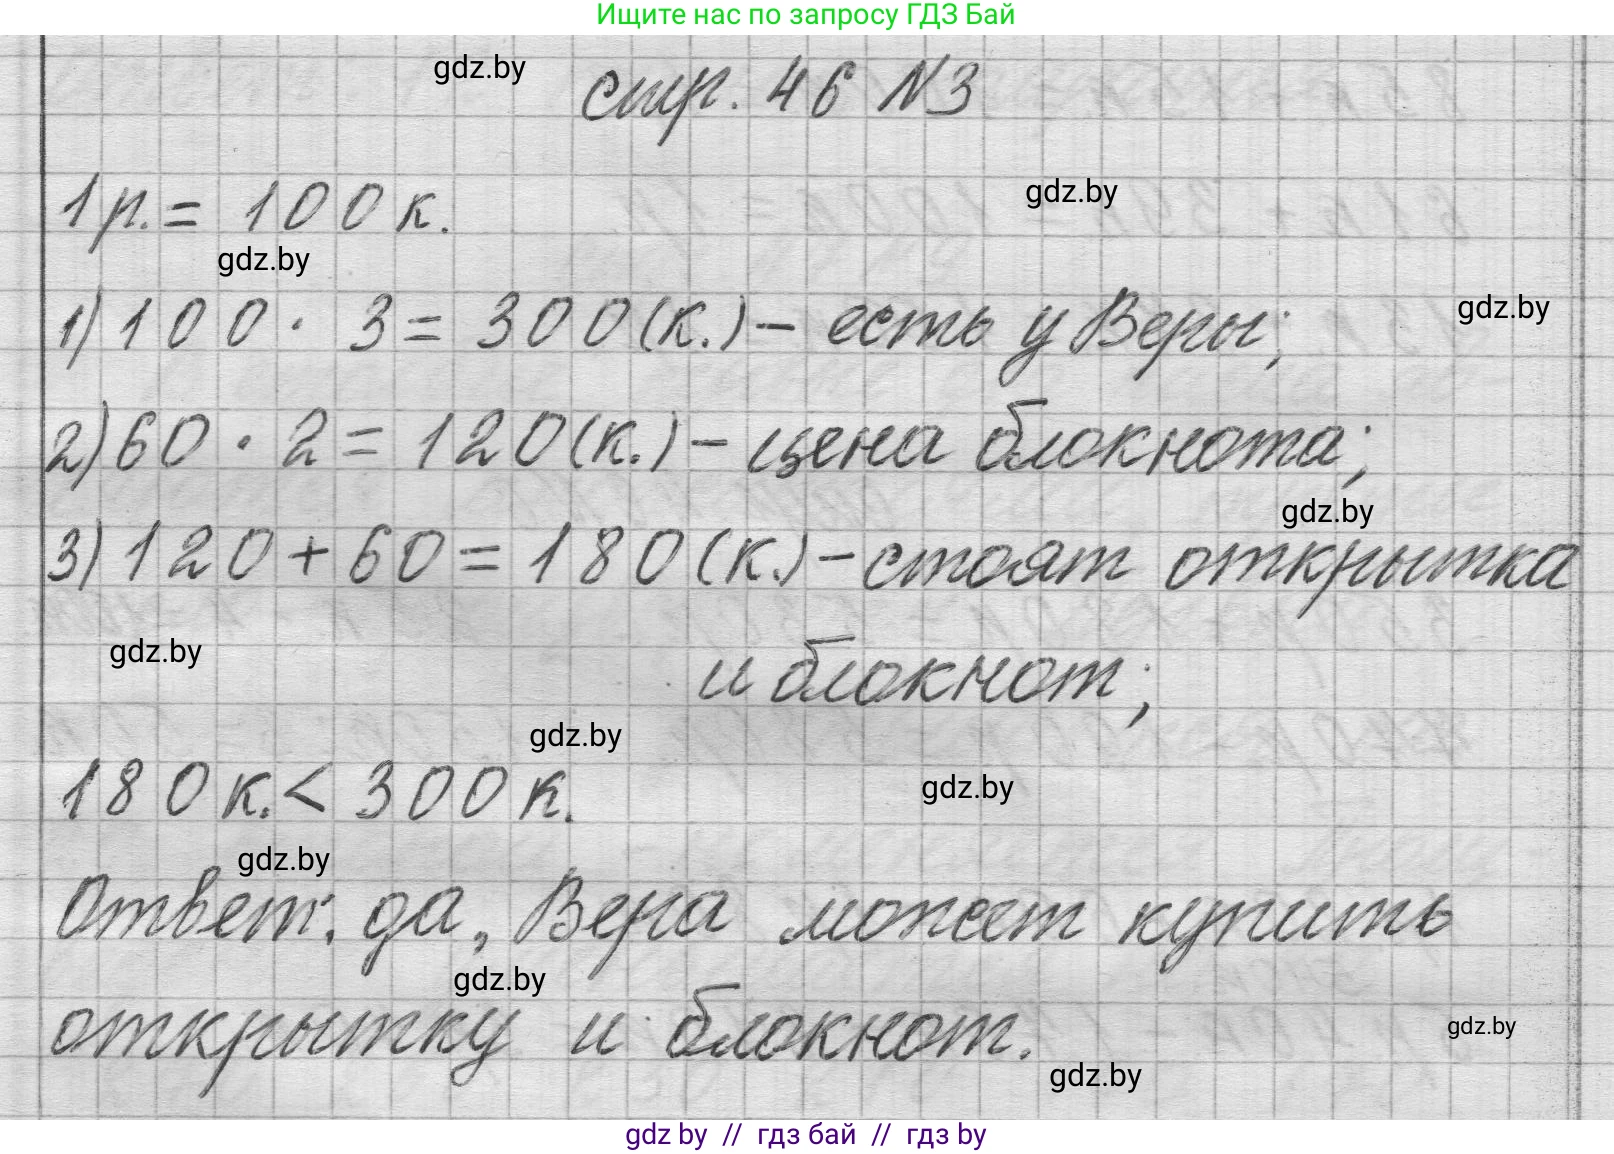 Ищите нас по запросу ГДЗ Бай
gdz.by
стр. 46 №3
gdz.by
1 р. = 100 к.
gdz.by
gdz.by
1) 100 · 3 = 300 (к.) – есть у Веры;
2) 60 · 2 = 120 (к.) – цена блокнота;
gdz.by
3) 120 + 60 = 180 (к.) – стоят открытка
gdz.by
и блокнот;
gdz.by
180 к. < 300 к.
gdz.by
gdz.by
Ответ: да, Вера может купить
gdz.by
открытку и блокнот.
gdz.by
gdz.by
gdz by // гдз бай // гдз by